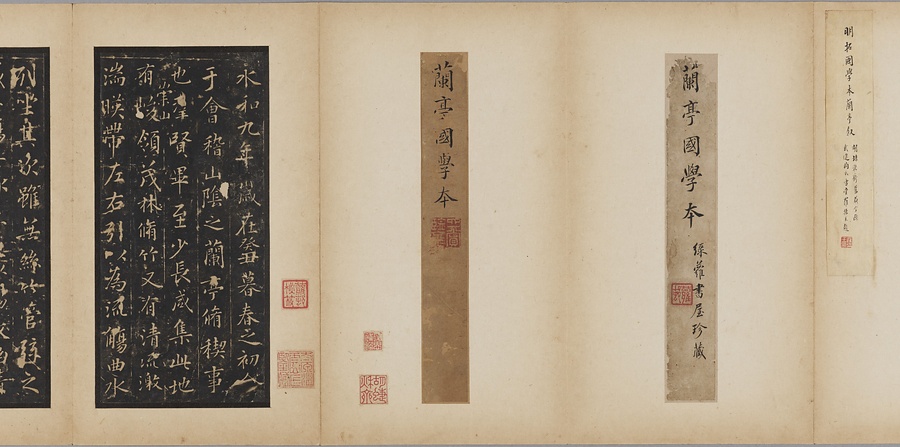 明拓國學本蘭亭敘
蘭亭國學本
綠蘿書屋珍藏
蘭亭國學本
永和九年歲在癸丑暮春之初
于會稽山陰之蘭亭脩稧事
也羣賢畢至少長咸集此地
有崇山峻領茂林脩竹又有清流激
湍暎帶左右引以為流觴曲水
列坐其次雖無絲竹管弦之